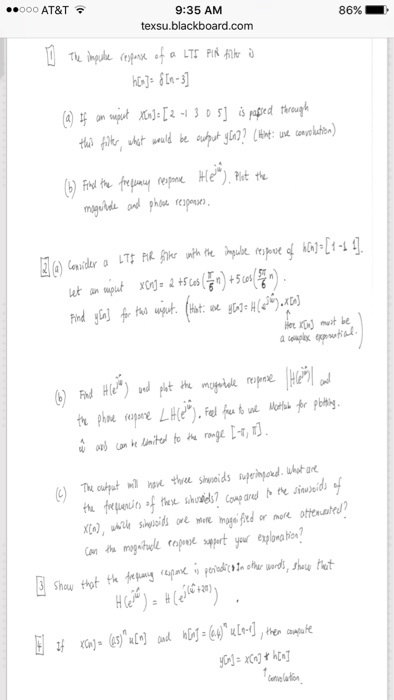 ●●○○○ AT&T 9:35 AM 86%
texsu.blackboard.com
1 The impulse response of a LTI FIR filter is
h[n]= δ[n-3]
(a) If an input x[n]=[2 -1 3 0 5] is passed through
this filter, what would be output y[n]? (Hint: use convolution)
(b) Find the frequency response H(e^jŵ). Plot the
magnitude and phase responses.
2 (a) Consider a LTI FIR filter with the impulse response of h[n]=[1 -1 1].
Let an input x[n]= 2 +5 cos(π/6 n) + 5 cos(5π/6 n).
Find y[n] for this input. (Hint: use y[n]= H(e^jŵ).x[n]
↑
Here x[n] must be
a complex exponential.)
(b) Find H(e^jŵ) and plot the magnitude response |H(e^jŵ)| and
the phase response ∠H(e^jŵ). Feel free to use Matlab for plotting.
ŵ axis can be limited to the range [-π, π].
(c) The output will have three sinusoids superimposed. What are
the frequencies of these sinusoids? Compared to the sinusoids of
x[n], which sinusoids are more magnified or more attenuated?
Can the magnitude response support your explanation?
3 Show that the frequency response is periodic. In other words, show that
H(e^jŵ) = H(e^j(ŵ+2π)).
4 If x[n]= (0.5)^n u[n] and h[n]= (0.4)^n u[n-1], then compute
y[n]= x[n] * h[n]
↑ convolution